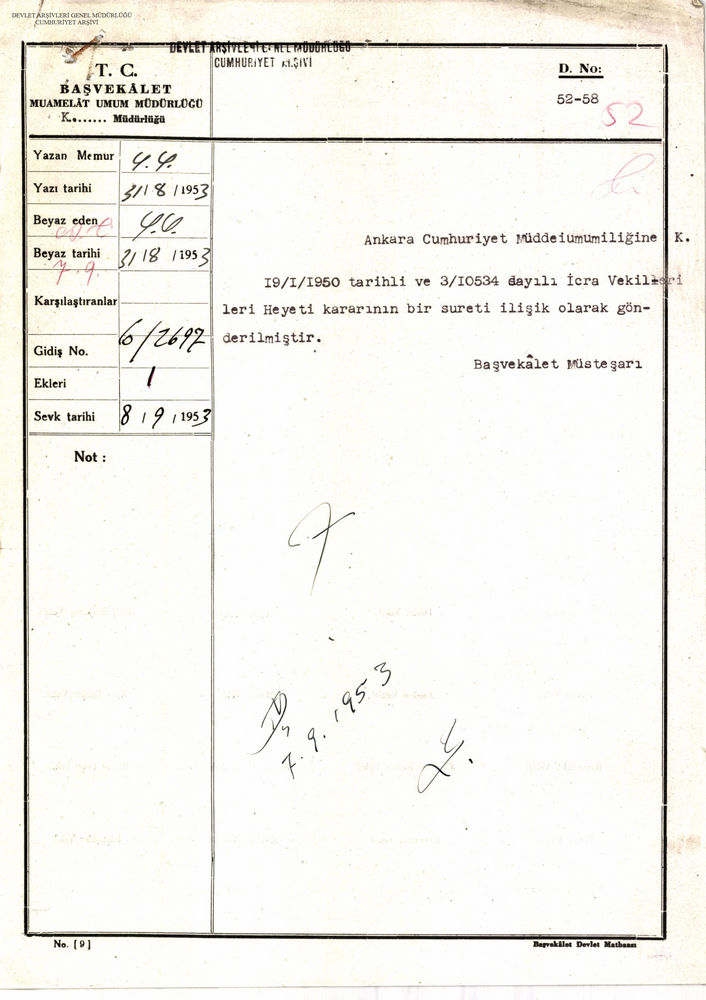 DEVLET ARŞİVLERİ GENEL MÜDÜRLÜĞÜ
CUMHURİYET ARŞİVİ
DEVLET ARŞİVLERİ GENEL MÜDÜRLÜĞÜ
CUMHURİYET ARŞİVİ
T. C.
BAŞVEKÂLET
MUAMELÂT UMUM MÜDÜRLÜĞÜ
K....... Müdürlüğü
D. No:
52-58
52
Yazan Memur
Yazı tarihi 31/8/1953
Beyaz eden
Beyaz tarihi 31/8/1953
7.9.
Karşılaştıranlar
Gidiş No. 6/2697
Ekleri 1
Sevk tarihi 8/9/1953
Not :
Ankara Cumhuriyet Müddeiumumiliğine K.
19/I/1950 tarihli ve 3/10534 dayılı İcra Vekilleri
leri Heyeti kararının bir sureti ilişik olarak gön-
derilmiştir.
Başvekâlet Müsteşarı
7.9.1953
No. [9]
Başvekâlet Devlet Matbaası